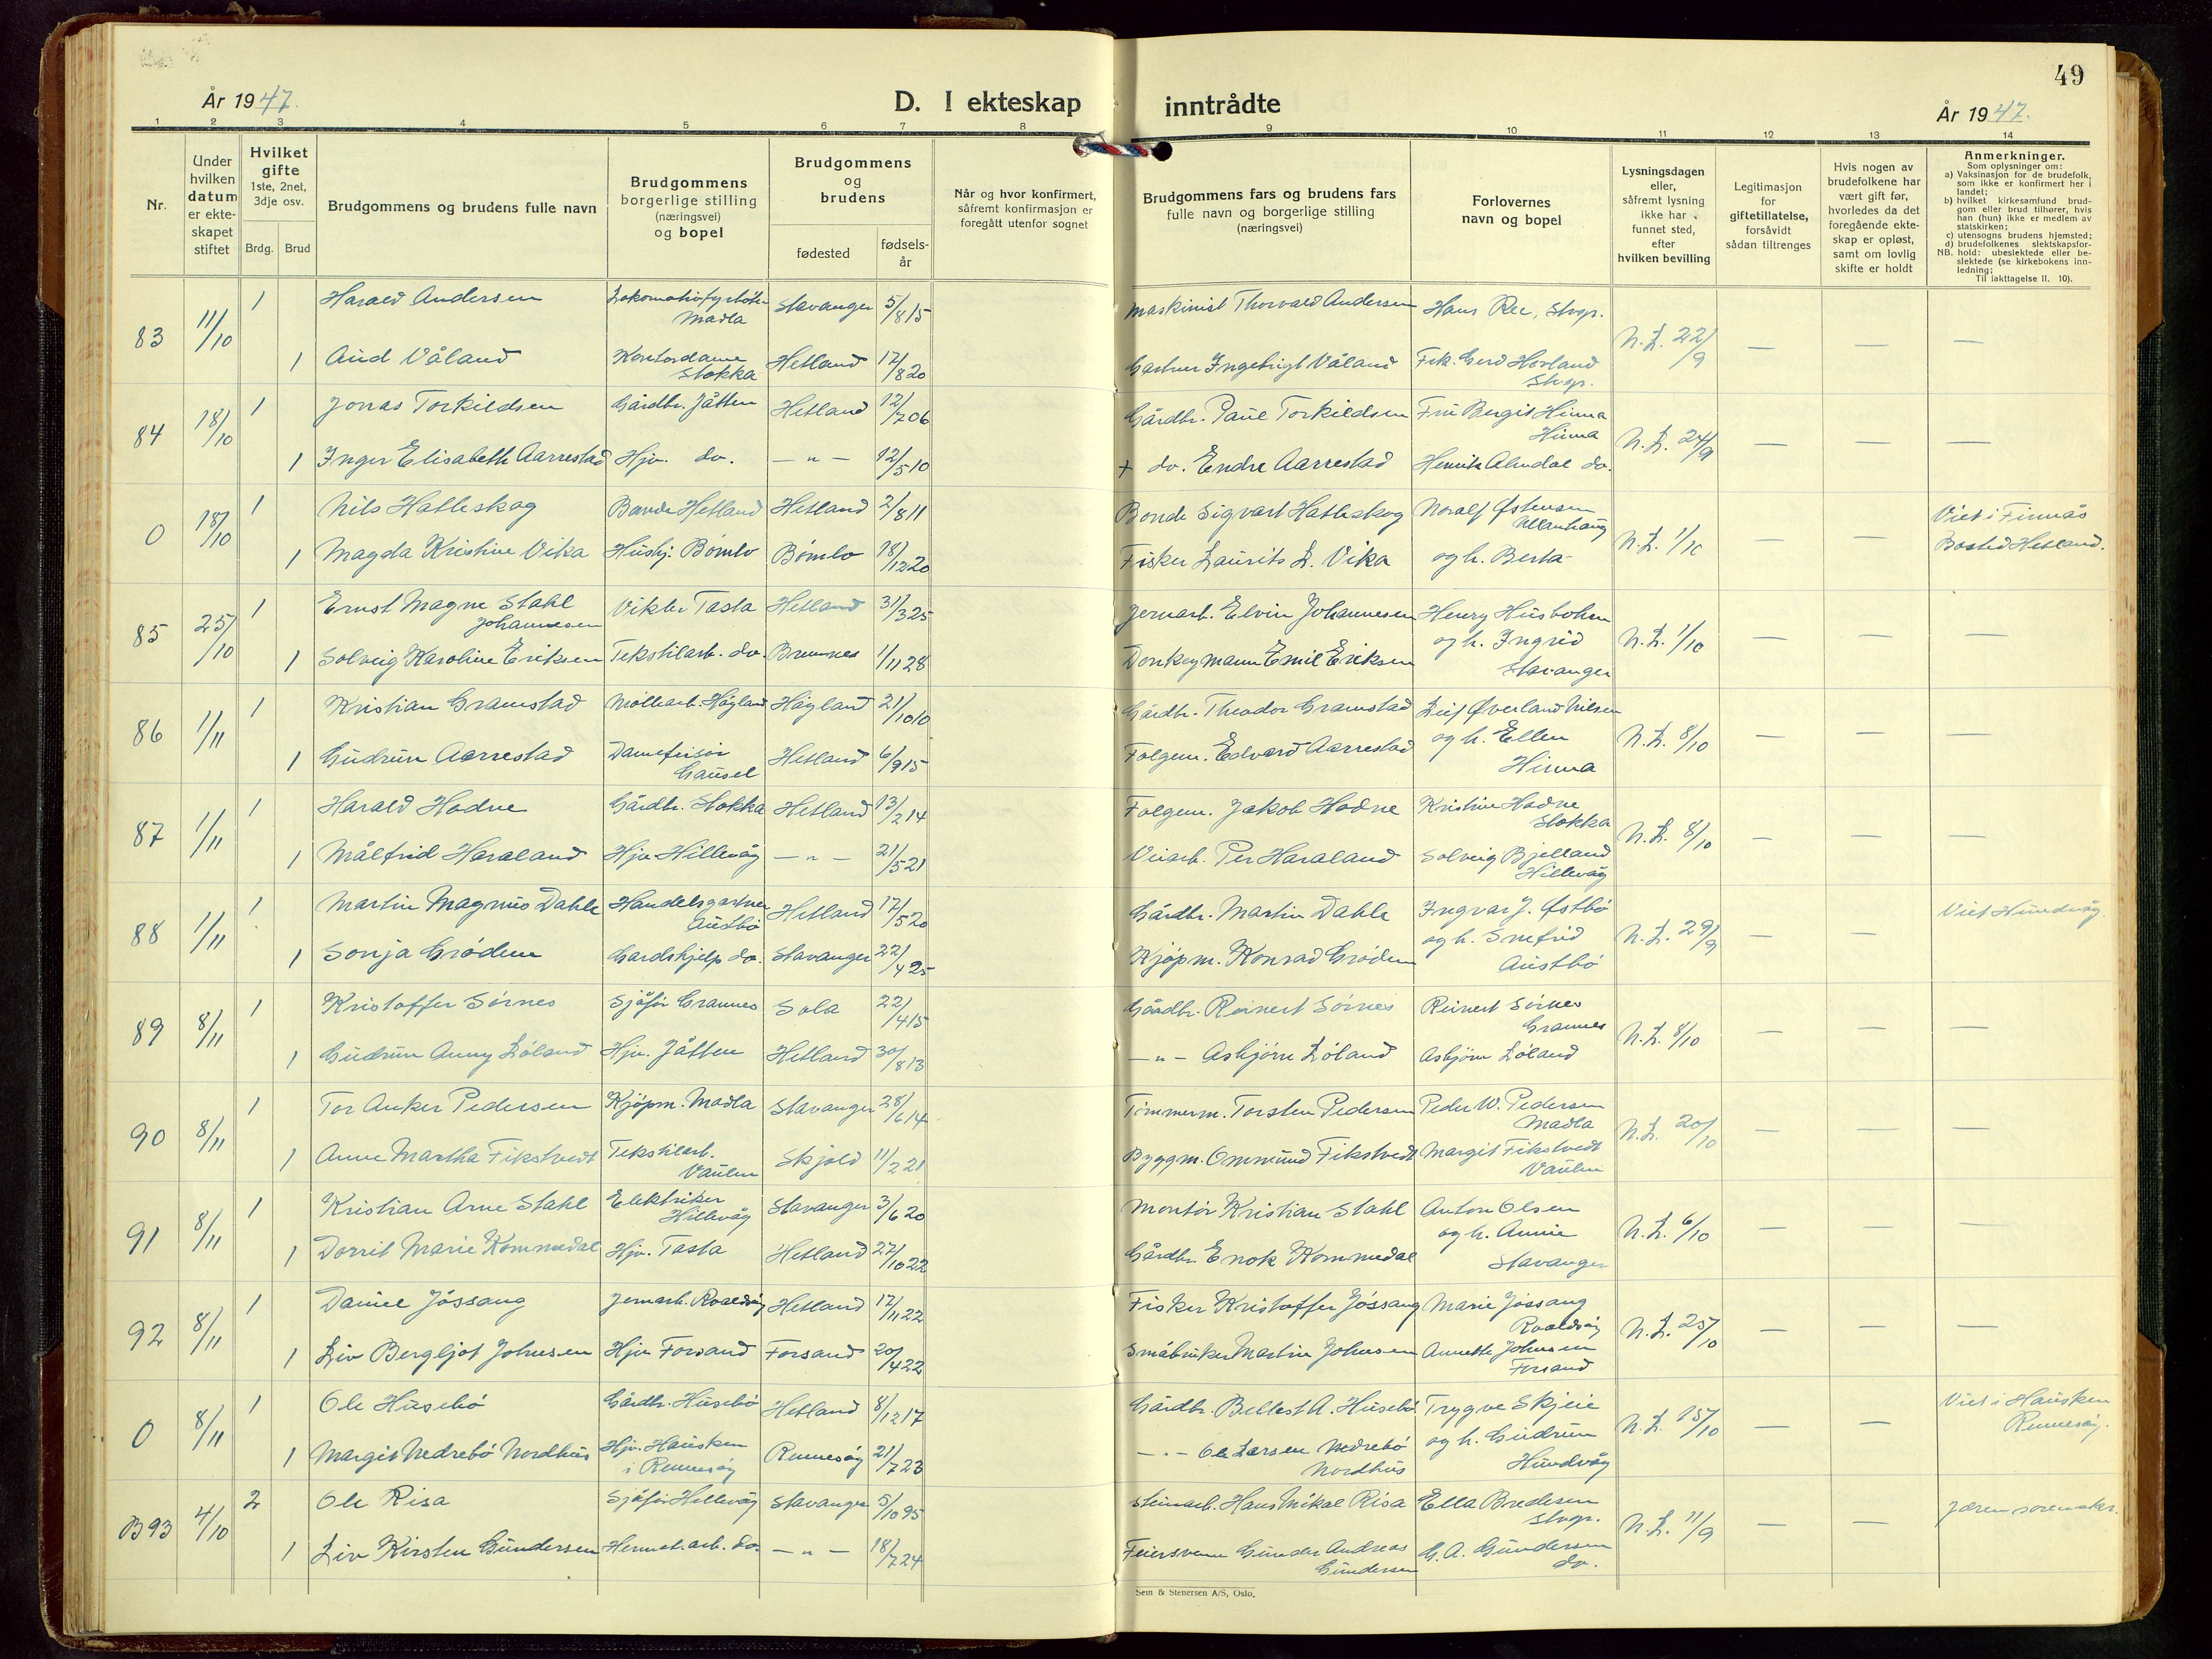 49
År 1947.
D. I ekteskap inntrådte
År 1947.
1 2 3 4 5 6 7 8 9 10 11 12 13 14
Nr.
Under hvilken datum er ekteskapet stiftet
Hvilket gifte 1ste, 2net, 3dje osv.
Brdg. Brud
Brudgommens og brudens fulle navn
Brudgommens borgerlige stilling (næringsvei) og bopel
Brudgommens og brudens
fødested
fødsels-år
Når og hvor konfirmert, såfremt konfirmasjon er foregått utenfor sognet
Brudgommens fars og brudens fars fulle navn og borgerlige stilling (næringsvei)
Forlovernes navn og bopel
Lysningsdagen eller, såfremt lysning ikke har funnet sted, efter hvilken bevilling
Legitimasjon for giftetillatelse, forsåvidt sådan tiltrenges
Hvis nogen av brudefolkene har vært gift før, hvorledes da det foregående ekteskap er opløst, samt om lovlig skifte er holdt
Anmerkninger.
Som oplysninger om:
a) Vaksinasjon for de brudefolk, som ikke er konfirmert her i landet;
b) hvilket kirkesamfund brudgom eller brud tilhører, hvis han (hun) ikke er medlem av statskirken;
c) utensogns brudens hjemsted;
d) brudefolkenes slektskapsforhold: ubeslektede eller beslektede (se kirkebokens innledning;
NB.
Til iakttagelse II. 10).
83 11/10 1 Harald Andersen Lokomotivfyrbøter Madla Stavanger 5/8 15 Maskinist Thorvald Andersen Hans Ree, Stvgr. N.L. 22/9 — — —
1 Aud Våland Kontordame Stokka Hetland 17/8 20 Gartner Ingebrigt Våland Frk. Gerd Hovland Stvgr.
84 18/10 1 Jonas Torkildsen Gårdbr. Jåtten Hetland 12/7 06 Gårdbr. Paul Torkildsen Fru Bergit Hinna Hinna N.L. 24/9 — — —
1 Inger Elisabeth Aarrestad Hjv. do. — " — 12/5 10 + do. Endre Aarrestad Henrik Almdal do.
0 18/10 1 Nils Hatleskog Bonde Hetland Hetland 2/8 11 Bonde Sigvart Hatleskog Noralf Østensen Ullenhaug N.L. 1/10 — — Viet i Finnås
1 Magda Kristine Vika Hushj. Bømlo Bømlo 18/12 20 Fisker Laurits L. Vika og h. Berta Bosted Hetland.
85 25/10 1 Ernst Magne Stahl Johannesen Vikler Tasta Hetland 31/3 25 Jernarb. Elvin Johannesen Henry Husbohm N.L. 1/10 — — —
1 Solveig Karoline Eriksen Tekstilarb. do. Bremnes 1/11 28 Donkeymann Emil Eriksen og h. Ingrid Stavanger
86 1/11 1 Kristian Gramstad Møllearb. Høyland Høyland 21/10 10 Gårdbr. Theodor Gramstad Leif Øverland Nilsen N.L. 8/10 — — —
1 Gudrun Aarrestad Damefrisør Gausel Hetland 6/9 15 Folgem. Edvard Aarrestad og h. Ellen Hinna
87 1/11 1 Harald Hodne Gårdbr. Stokka Hetland 13/2 14 Folgem. Jakob Hodne Kristine Hodne Stokka N.L. 8/10 — — —
1 Målfrid Haraland Hjv. Hillevåg — " — 21/5 21 Veiarb. Per Haraland Solveig Bjelland Hillevåg
88 1/11 1 Martin Magnus Dahle Handelsgartner Austbø Hetland 17/5 20 Gårdbr. Martin Dahle Ingvar J. Østbø N.L. 29/9 — — Viet Hundvåg.
1 Sonja Grødem Gardshjelp do. Stavanger 22/4 25 Kjøpm. Konrad Grødem og h. Snefrid Austbø
89 8/11 1 Kristoffer Sørnes Sjåfør Grannes Sola 22/4 15 Gårdbr. Reinert Sørnes Reinert Sørnes Grannes N.L. 8/10 — — —
1 Gudrun Anny Løland Hjv. Jåtten Hetland 30/8 13 — " — Asbjørn Løland Asbjørn Løland
90 8/11 1 Tor Anker Pedersen Kjøpm. Madla Stavanger 28/6 14 Timmerm. Torsten Pedersen Peder W. Pedersen Madla N.L. 20/10 — — —
1 Anne Martha Fikstvedt Tekstilarb. Vaulen Skjold 11/2 21 Byggm. Ommund Fikstvedt Margit Fikstvedt Vaulen
91 8/11 1 Kristian Arne Stahl Elektriker Hillevåg Stavanger 3/6 20 Montør Kristian Stahl Anton Olsen N.L. 6/10 — — —
1 Dorrit Marie Kommedal Hjv. Tasta Hetland 27/10 22 Gårdbr. Enok Kommedal og h. Annie Stavanger
92 8/11 1 Daniel Jøssang Jernarb. Roaldsøy Hetland 17/11 22 Fisker Kristoffer Jøssang Marie Jøssang Roaldsøy N.L. 25/10 — — —
1 Liv Bergljot Johnsen Hjv. Forsand Forsand 20/4 22 Småbruker Martin Johnsen Annette Johnsen Forsand
0 8/11 1 Ole Husebø Gårdbr. Husebø Hetland 8/12 17 Gårdbr. Bellest A. Husebø Trygve Skjeie N.L. 15/10 — — Viet i Hausken
1 Margit Nedrebø Nordhus Hjv. Hausken i Rennesøy Rennesøy 21/7 23 — " — Ole Larsen Nedrebø Nordhus og h. Gudrun Hundvåg Rennesøy.
B93 4/10 2 Ole Risa Sjåfør Hillevåg Stavanger 5/10 95 Steinarb. Hans Mikal Risa Ella Bredesen Stvgr. N.L. 11/9 — — Jæren sorenskr.
1 Liv Kirsten Gundersen Hermet.arb. do. — " — 18/7 24 Feiersvenn Gunder Andreas Gundersen G. A. Gundersen do.
Sem & Stenersen A/S, Oslo.